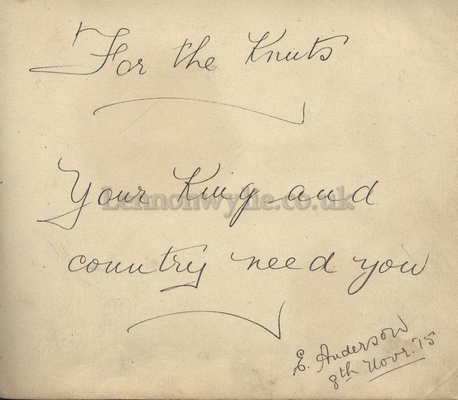 For the Knuts
Your King and
lennonwylie.co.uk
country need you
E. Anderson
8th Novr. 15